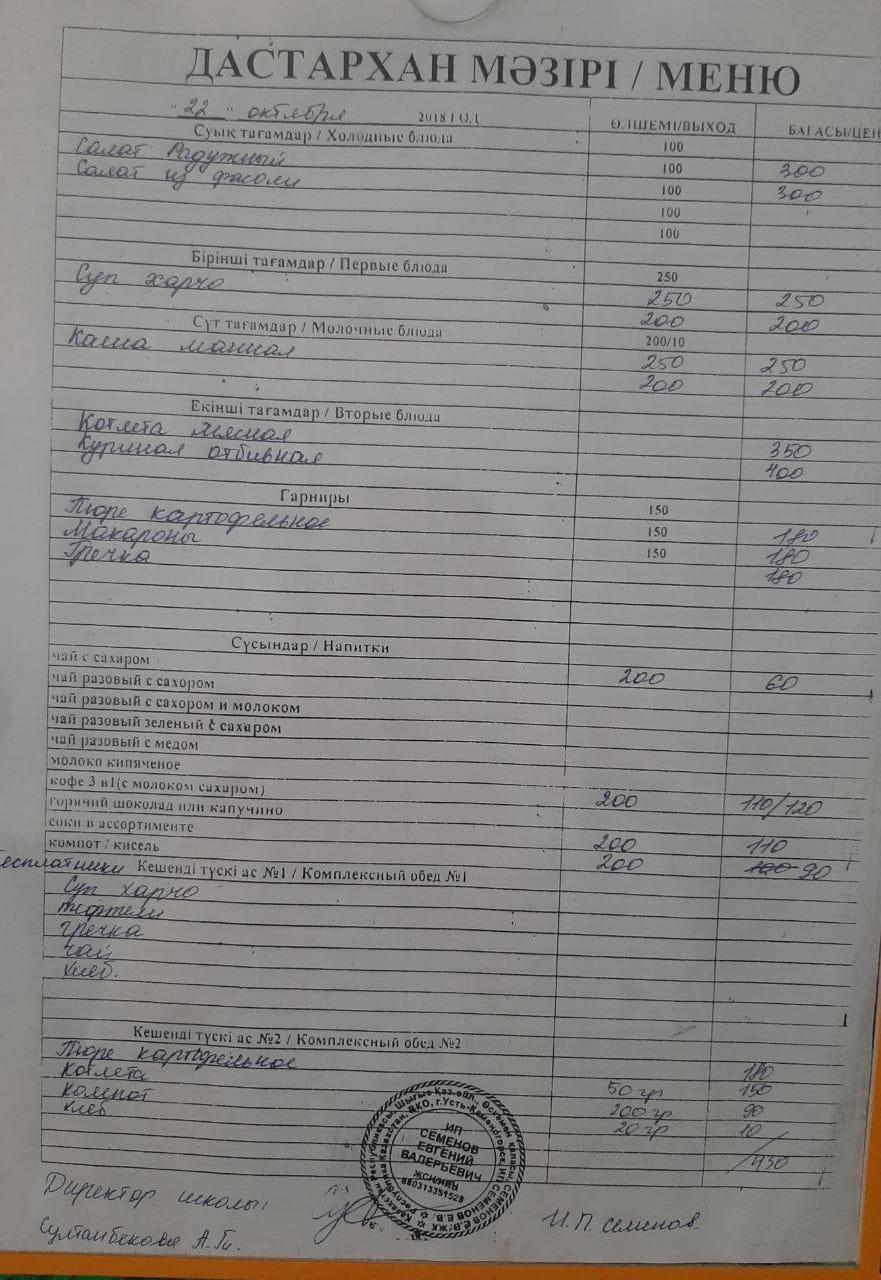 ДАСТАРХАН МӘЗІРІ / МЕНЮ
"22" октября 2018 ГОД ӨЛШЕМІ/ВЫХОД БАҒАСЫ/ЦЕН
Суық тағамдар / Холодные блюда 100
Салат Радужный 100 300
Салат из фасоли 100 300
100
100
Бірінші тағамдар / Первые блюда 250
Суп харчо 250 250
200 200
Сүт тағамдар / Молочные блюда 200/10
Каша манная 250 250
200 200
Екінші тағамдар / Вторые блюда
Котлета мясная 350
Куриная отбивная 400
Гарниры 150
Пюре картофельное 150 180
Макароны 150 180
Гречка 180
Сусындар / Напитки
чай с сахаром 200 60
чай разовый с сахором
чай разовый с сахором и молоком
чай разовый зеленый с сахаром
чай разовый с медом
молоко кипяченое
кофе 3 в1(с молоком сахаром) 200 110/120
горячий шоколад или капучино
соки в ассортименте 200 110
компот / кисель 200 100 90
есплатники Кешенді түскі ас №1 / Комплексный обед №1
Суп харчо
тефтели
гречка
чай
хлеб.
Кешенді түскі ас №2 / Комплексный обед №2
Пюре картофельное 180
Котлета 50 гр 150
Компот 200 гр 90
хлеб 20 гр 10
/430
ИП
СЕМЕНОВ
ЕВГЕНИЙ
ВАЛЕРЬЕВИЧ
ЖСН/ИИН
Директор школы:
Султанбекова А.Ти. И.П. Семенов.